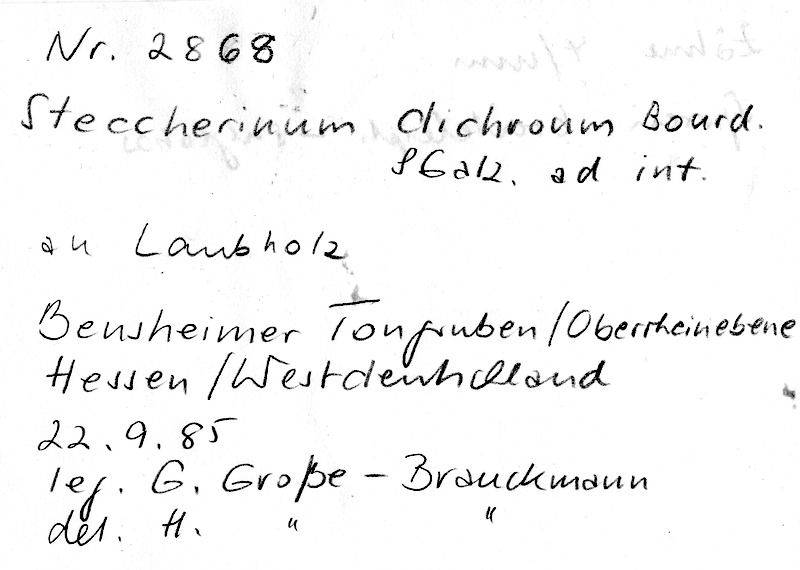 Nr. 2868
Steccherinum dichroum Bourd.
& Galz. ad int.
an Laubholz
Bensheimer Tongruben/Oberrheinebene
Hessen/Westdeutschland
22.9.85
leg. G. Große-Brauckmann
det. H. " "